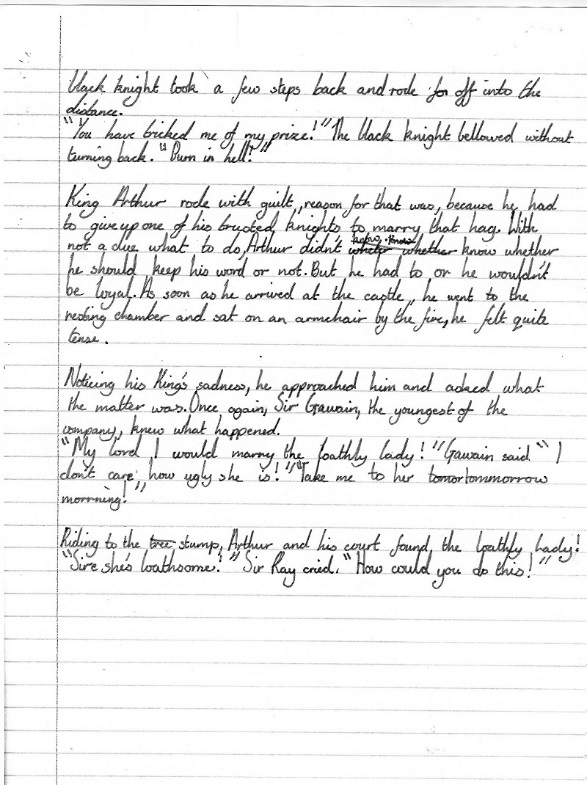 black knight took a few steps back and rode for off into the
distance.
"You have tricked me of my prize!" The black knight bellowed without
turning back. "Burn in hell!"
King Arthur rode with guilt, reason for that was, because he had
to give up one of his trusted knights to marry that hag. With
not a clue what to do, Arthur didn't whether know whether
he should keep his word or not. But he had to or he wouldn't
be loyal. As soon as he arrived at the castle, he went to the
resting chamber and sat on an armchair by the fire, he felt quite
tense.
Noticing his King's sadness, he approached him and asked what
the matter was. Once again, Sir Gawain, the youngest of the
company, knew what happened.
"My lord, I would marry the loathly lady!" Gawain said. "I
don't care how ugly she is!" "Take me to her tomortommorrow
morrning!"
Riding to the tree stump, Arthur and his court found the Loathly Lady!
"Sire she's loathsome!" Sir Kay cried. "How could you do this!"